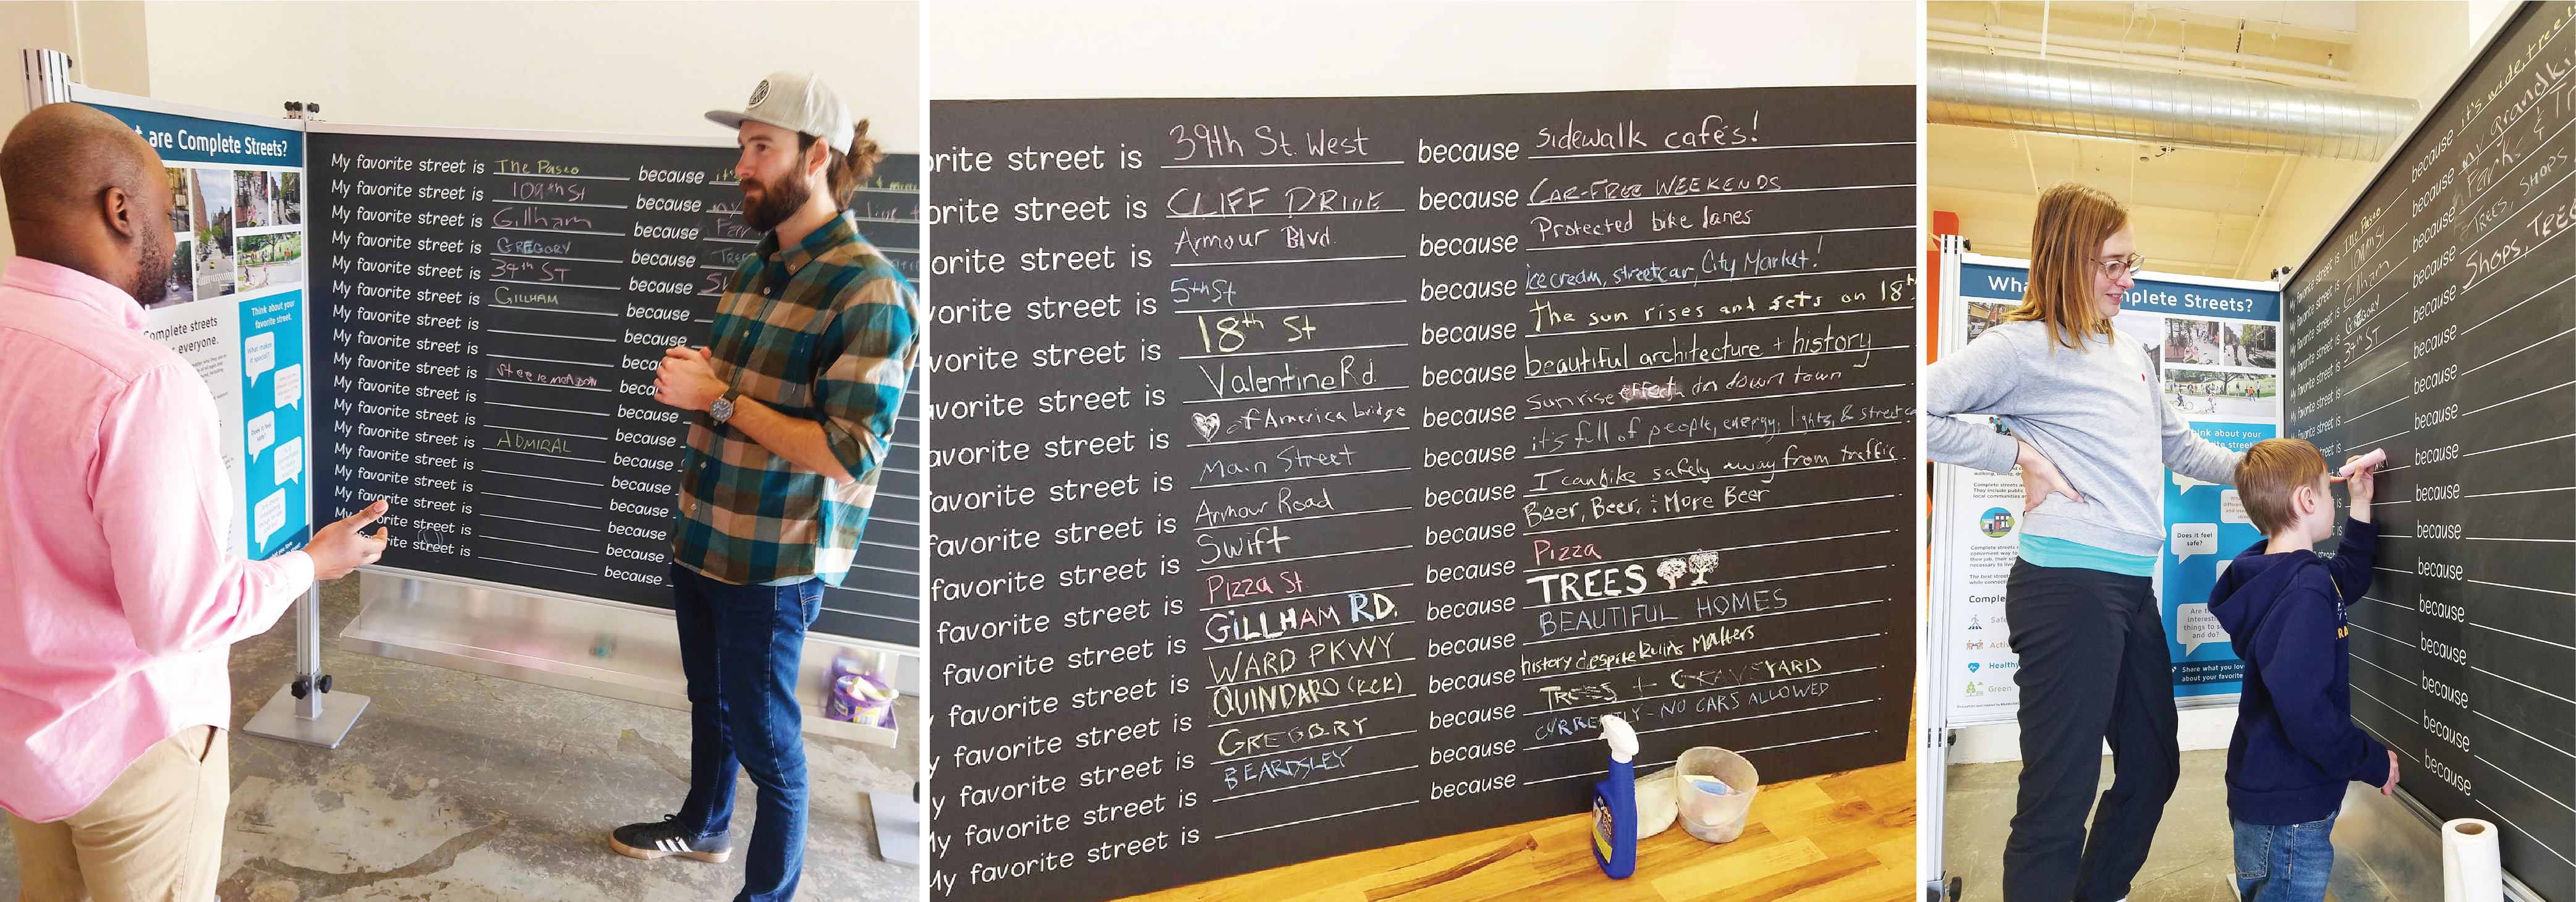 are Complete Streets?
My favorite street is The Paseo because it's
My favorite street is 109th St because my
My favorite street is Gillham because Par
My favorite street is GREGORY because Trees
My favorite street is 39th ST because Sh
My favorite street is GILLHAM because
My favorite street is because
My favorite street is
My favorite street is
My favorite street is because
My favorite street is because
My favorite street is ADMIRAL because
My favorite street is because
My favorite street is because
My favorite street is because
favorite street is because
street is because
Complete streets
everyone.
Think about your
favorite street.
What makes
it special?
Does it feel
safe?
orite street is 39th St. West because sidewalk cafés!
orite street is CLIFF DRIVE because CAR-FREE WEEKENDS
orite street is Armour Blvd. because Protected bike lanes
vorite street is 5th St because ice cream, streetcar, City Market!
vorite street is 18th St because The sun rises and sets on 18th
avorite street is Valentine Rd. because beautiful architecture + history
avorite street is of America bridge because sunrise effect on down town
avorite street is Main Street because it's full of people, energy, lights, & streetca
favorite street is Armour Road because I can bike safely away from traffic.
favorite street is Swift because Beer, Beer, & More Beer
favorite street is Pizza St. because Pizza
favorite street is GILLHAM RD. because TREES
favorite street is WARD PKWY because BEAUTIFUL HOMES
favorite street is QUINDARO (KCK) because history despite Ruins Matters
y favorite street is GREGORY because TREES + GRAVEYARD
y favorite street is BEARDSLEY because CURRENTLY - NO CARS ALLOWED
My favorite street is because
My favorite street is
What mplete Streets?
My favorite street is The Paseo because it's wide, tree
My favorite street is 109th St because my grandki
My favorite street is Gillham because Parks & Tr
My favorite street is GREGORY because Trees, SHOPS
My favorite street is 39th ST because Shops, TREE
because
because
because
because
because
because
because
because
because
because
because
Think about your
Does it feel
safe?
things to see
and do?
Share what you love
about your favorite
Comple
Safe
Activ
Healthy
Green